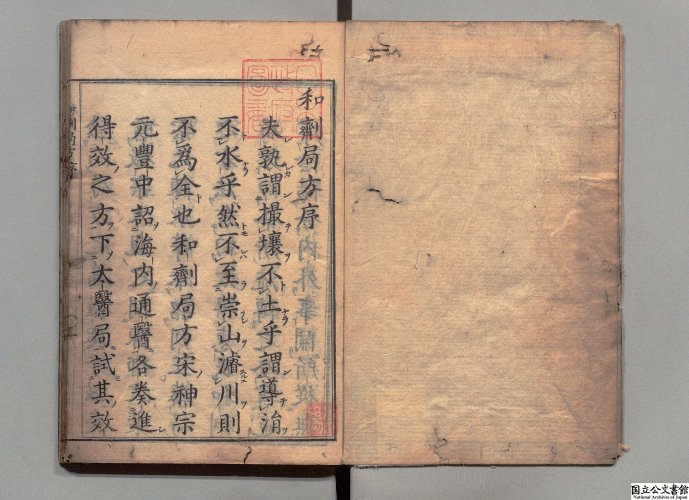 和劑局方序
夫孰謂撮壤不土乎謂導涓
不水乎然不至崇山濬川則
不爲全也和劑局方宋神宗
元豐中詔海内通醫各奏進
得效之方下太醫局試其效
国立公文書館
National Archives of Japan